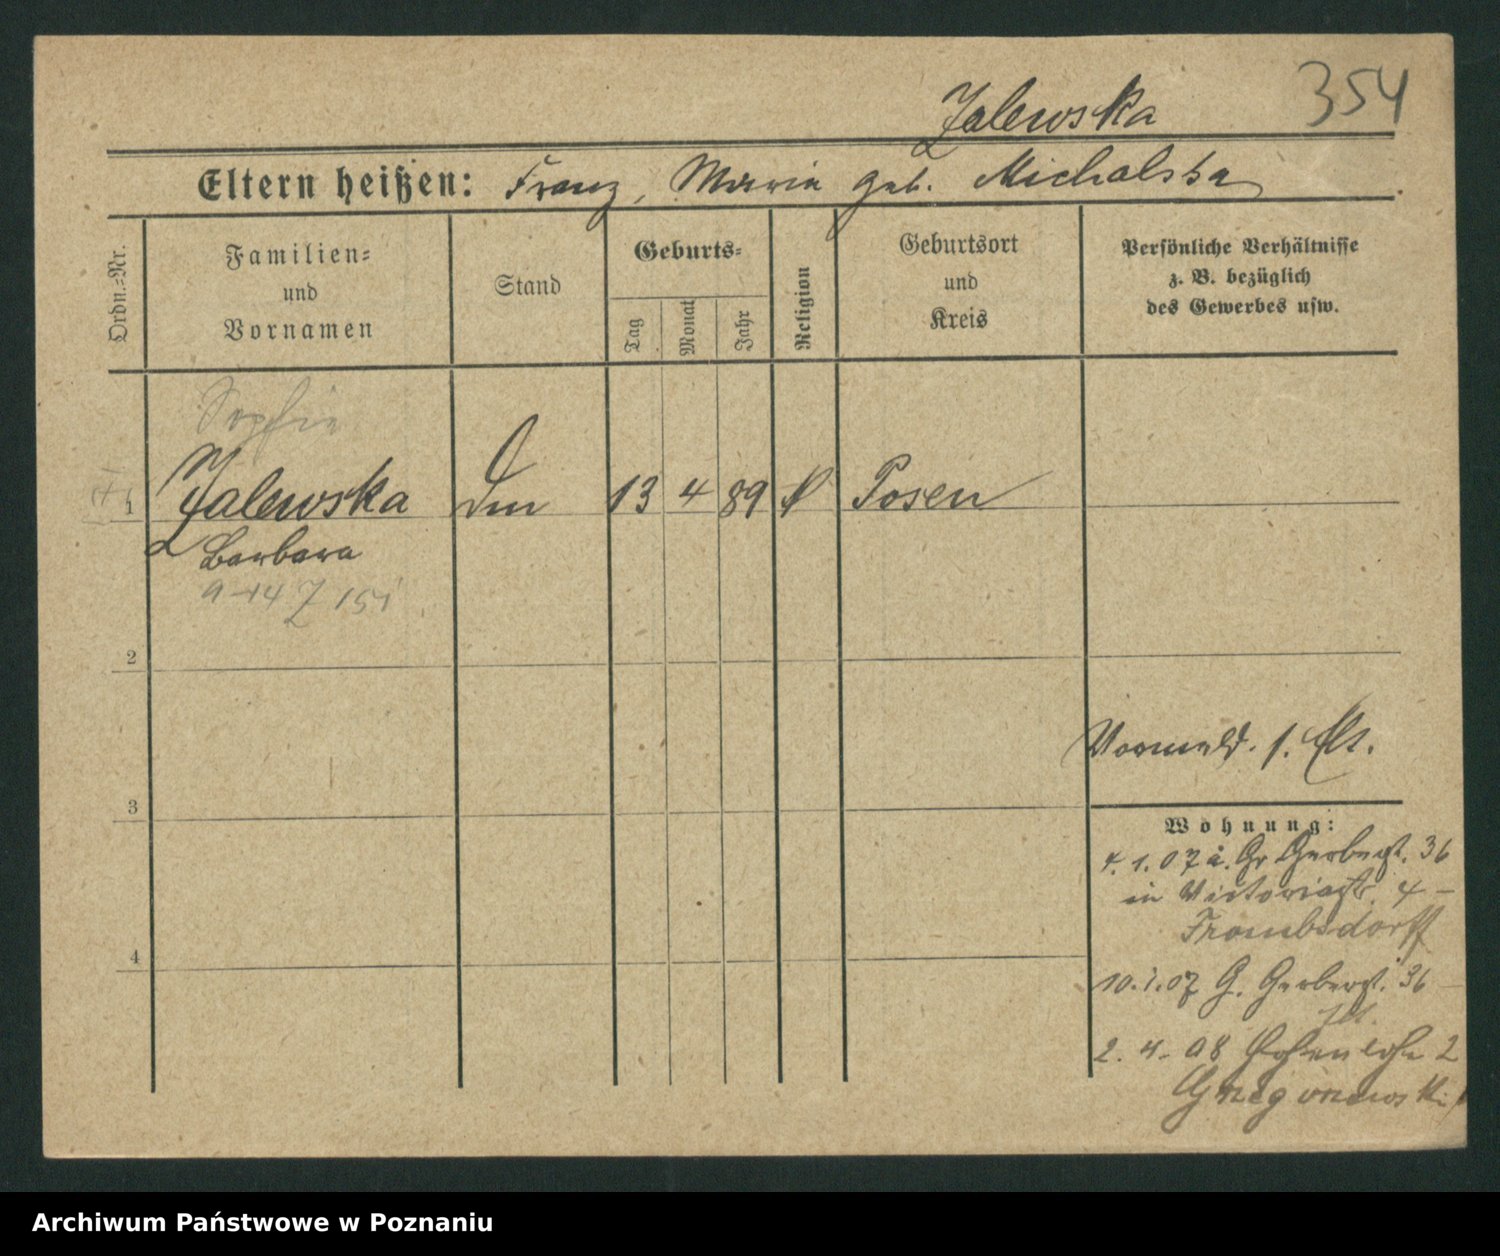 354
Zalewska
Eltern heißen: Franz, Maria geb. Michalska
Ordn.=Nr.
Familien=
und
Vornamen
Stand
Geburts=
Tag
Monat
Jahr
Religion
Geburtsort
und
Kreis
Persönliche Verhältnisse
z. B. bezüglich
des Gewerbes usw.
Sophie
1 Zalewska 13 4 89 Posen
Barbara
2
Vormeld. s.
3
Wohnung:
4.1.07 Gr Gerberst. 36
in Victoriastr. 4 –
4
10.1.07 G. Gerberst. 36 –
2. 4. 08 Hohenlohe 2
Archiwum Państwowe w Poznaniu